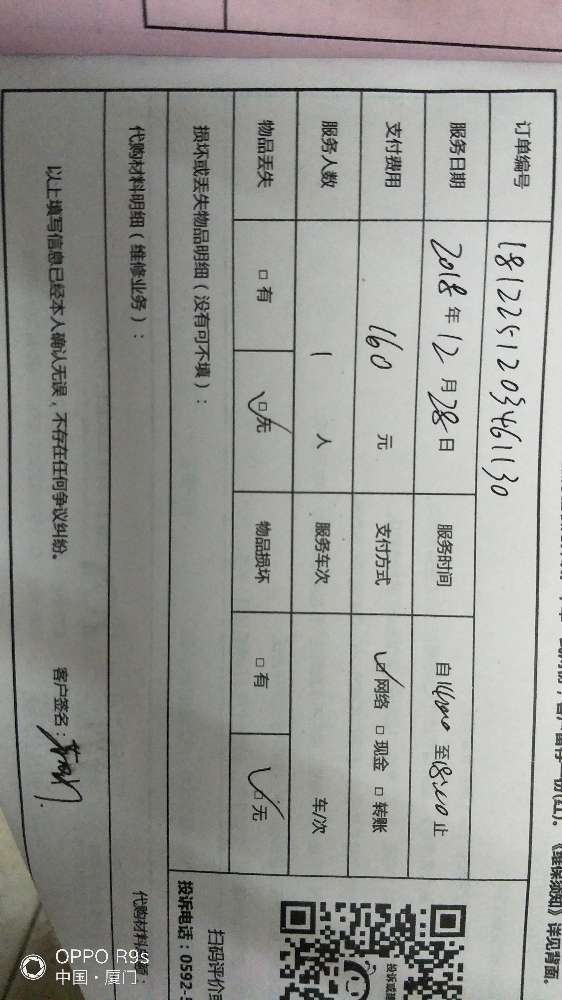 一份(红)。《维保须知》详见背面。
订单编号 1812251203461130
服务日期 2018年12月28日 服务时间 自14:00至18:00止
支付费用 160元 支付方式 网络 □ 现金 □ 转账
服务人数 1人 服务车次 车/次
物品丢失 □ 有 □ 无 物品损坏 □ 有 □ 无
损坏或丢失物品明细(没有可不填):
代购材料明细(维修业务):
以上填写信息已经本人确认无误,不存在任何争议纠纷。
客户签名:
扫码评价
投诉电话:0592-5
代购材料
OPPO R9s
中国·厦门